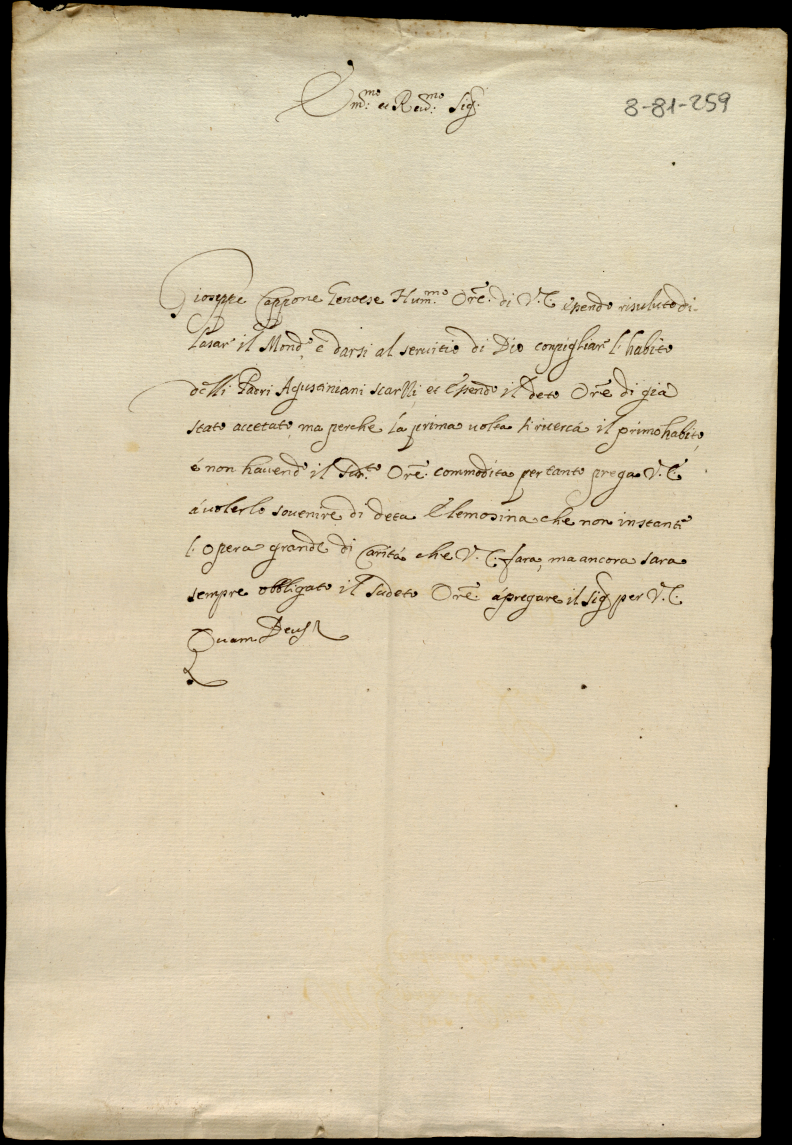 Em:mo et Reud:mo Sig:
8-81-259
Gioseppe Cappone Genoese Hum:mo Ore: di V. E. essendo risoluto di
lasar' il Mondo, e darsi al seruitio di Dio con pigliar l'habito
delli Padri Agustiniani scarlsi et essendo il deto Ore: di già
stato accetato, ma perche la prima uolta si ricerca il primo habito,
é non hauendo il Sud:to Ore: commodita per tanto prega V. E.
á uolerlo souenire di deta Elemosina che non instante
l'opera grande di Carità che V. E. fara, ma ancora sara
sempre obbligato il Sudeto Ore: a pregare il Sig: per V. E.
Quam Deus